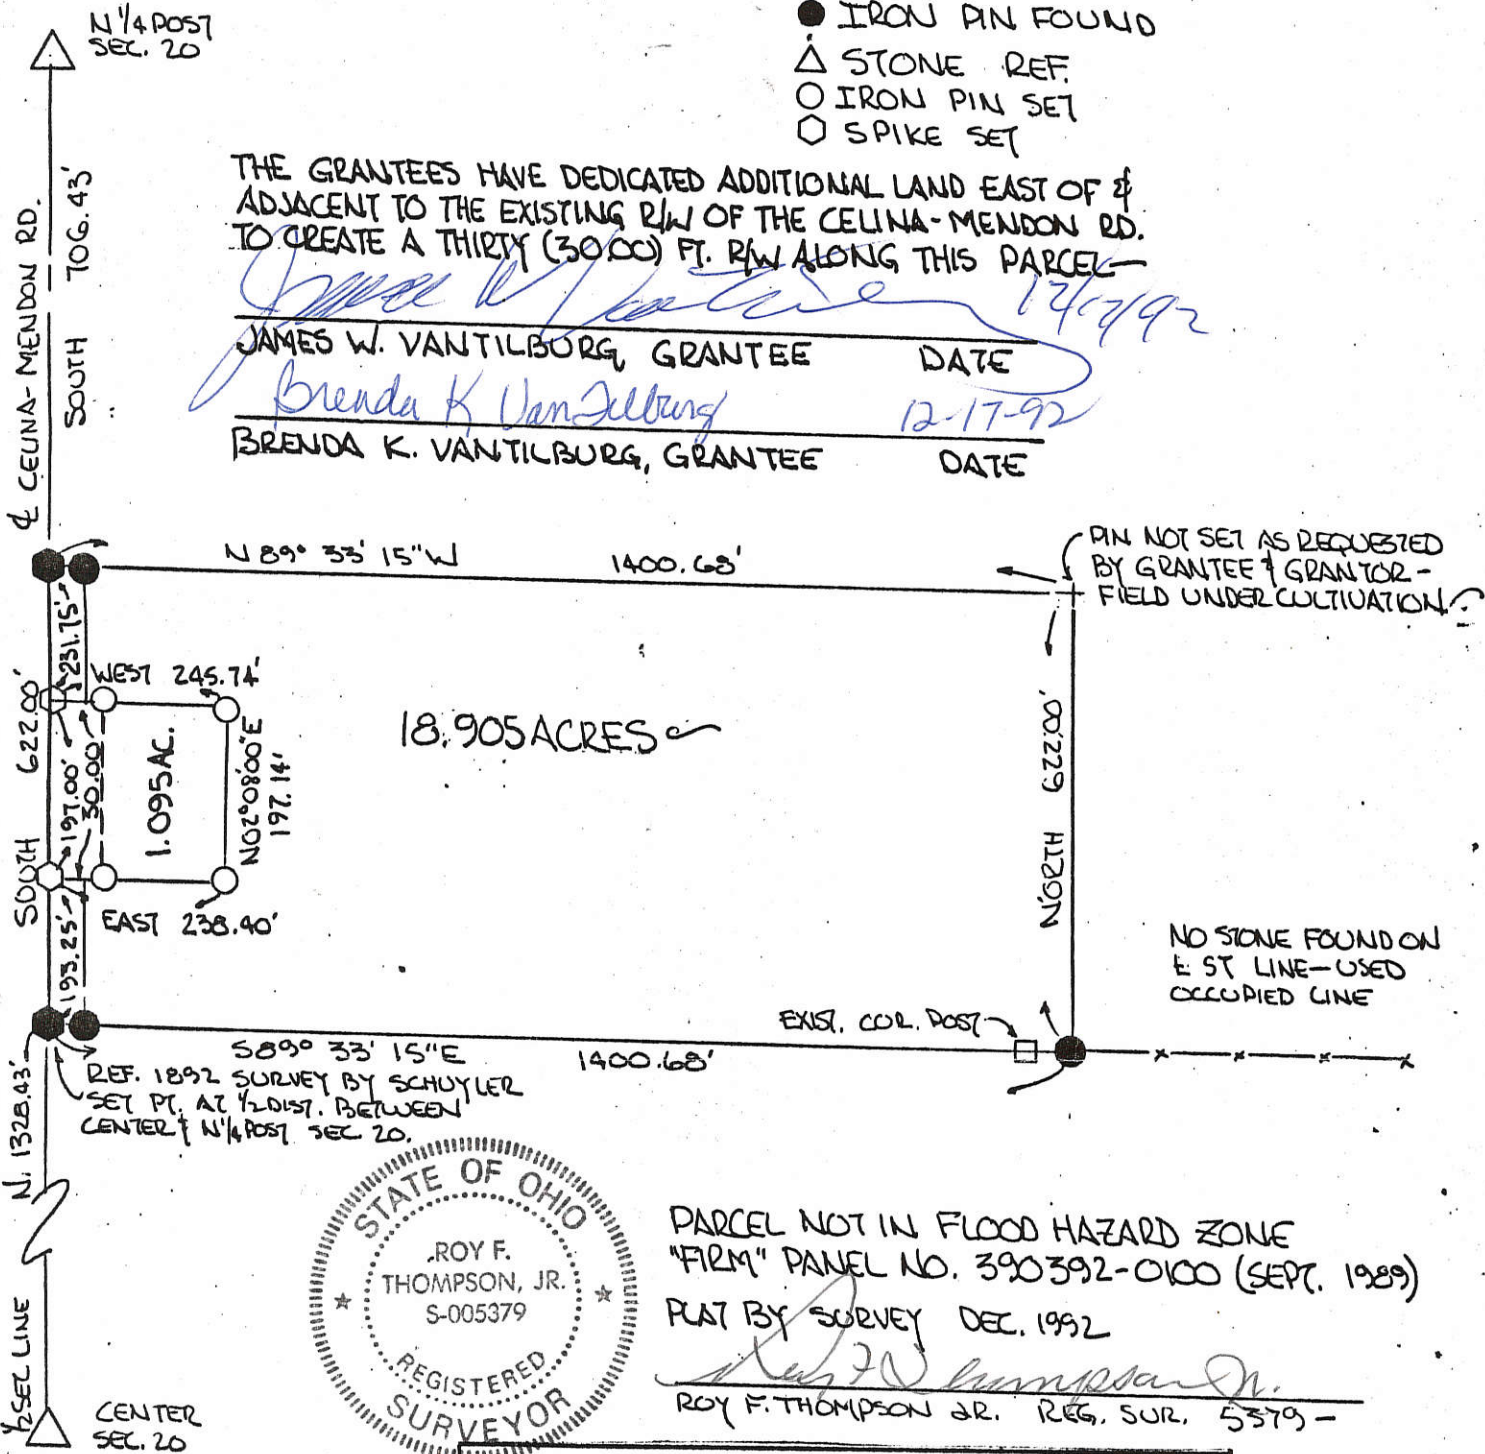 N 1/4 POST
SEC. 20
IRON PIN FOUND
STONE REF.
IRON PIN SET
SPIKE SET
THE GRANTEES HAVE DEDICATED ADDITIONAL LAND EAST OF &
ADJACENT TO THE EXISTING R/W OF THE CELINA-MENDON RD.
TO CREATE A THIRTY (30.00) FT. R/W ALONG THIS PARCEL—
JAMES W. VANTILBURG, GRANTEE DATE
Brenda K VanTilburg 12-17-92
BRENDA K. VANTILBURG, GRANTEE DATE
℄ CELINA-MENDON RD.
SOUTH 706.43'
N 89° 33' 15" W 1400.68'
PIN NOT SET AS REQUESTED
BY GRANTEE & GRANTOR-
FIELD UNDER CULTIVATION.
231.75'
WEST 245.74'
SOUTH 622.00'
197.00'
30.00'
1.095 AC.
N02°08'00"E
197.14'
18.905 ACRES
NORTH 622.00'
193.25'
EAST 238.40'
NO STONE FOUND ON
E. ST LINE—USED
OCCUPIED LINE
EXIST. COR. POST
S89° 33' 15"E 1400.68'
REF. 1892 SURVEY BY SCHUYLER
SET PT. AT 1/2 DIST. BETWEEN
CENTER & N 1/4 POST SEC 20.
N. 1328.43'
1/2 SEC LINE
CENTER
SEC. 20
STATE OF OHIO
ROY F.
THOMPSON, JR.
S-005379
REGISTERED
SURVEYOR
PARCEL NOT IN FLOOD HAZARD ZONE
"FIRM" PANEL NO. 390392-0100 (SEPT. 1989)
PLAT BY SURVEY DEC. 1992
Roy F Thompson Jr.
ROY F. THOMPSON JR. REG. SUR. 5379-